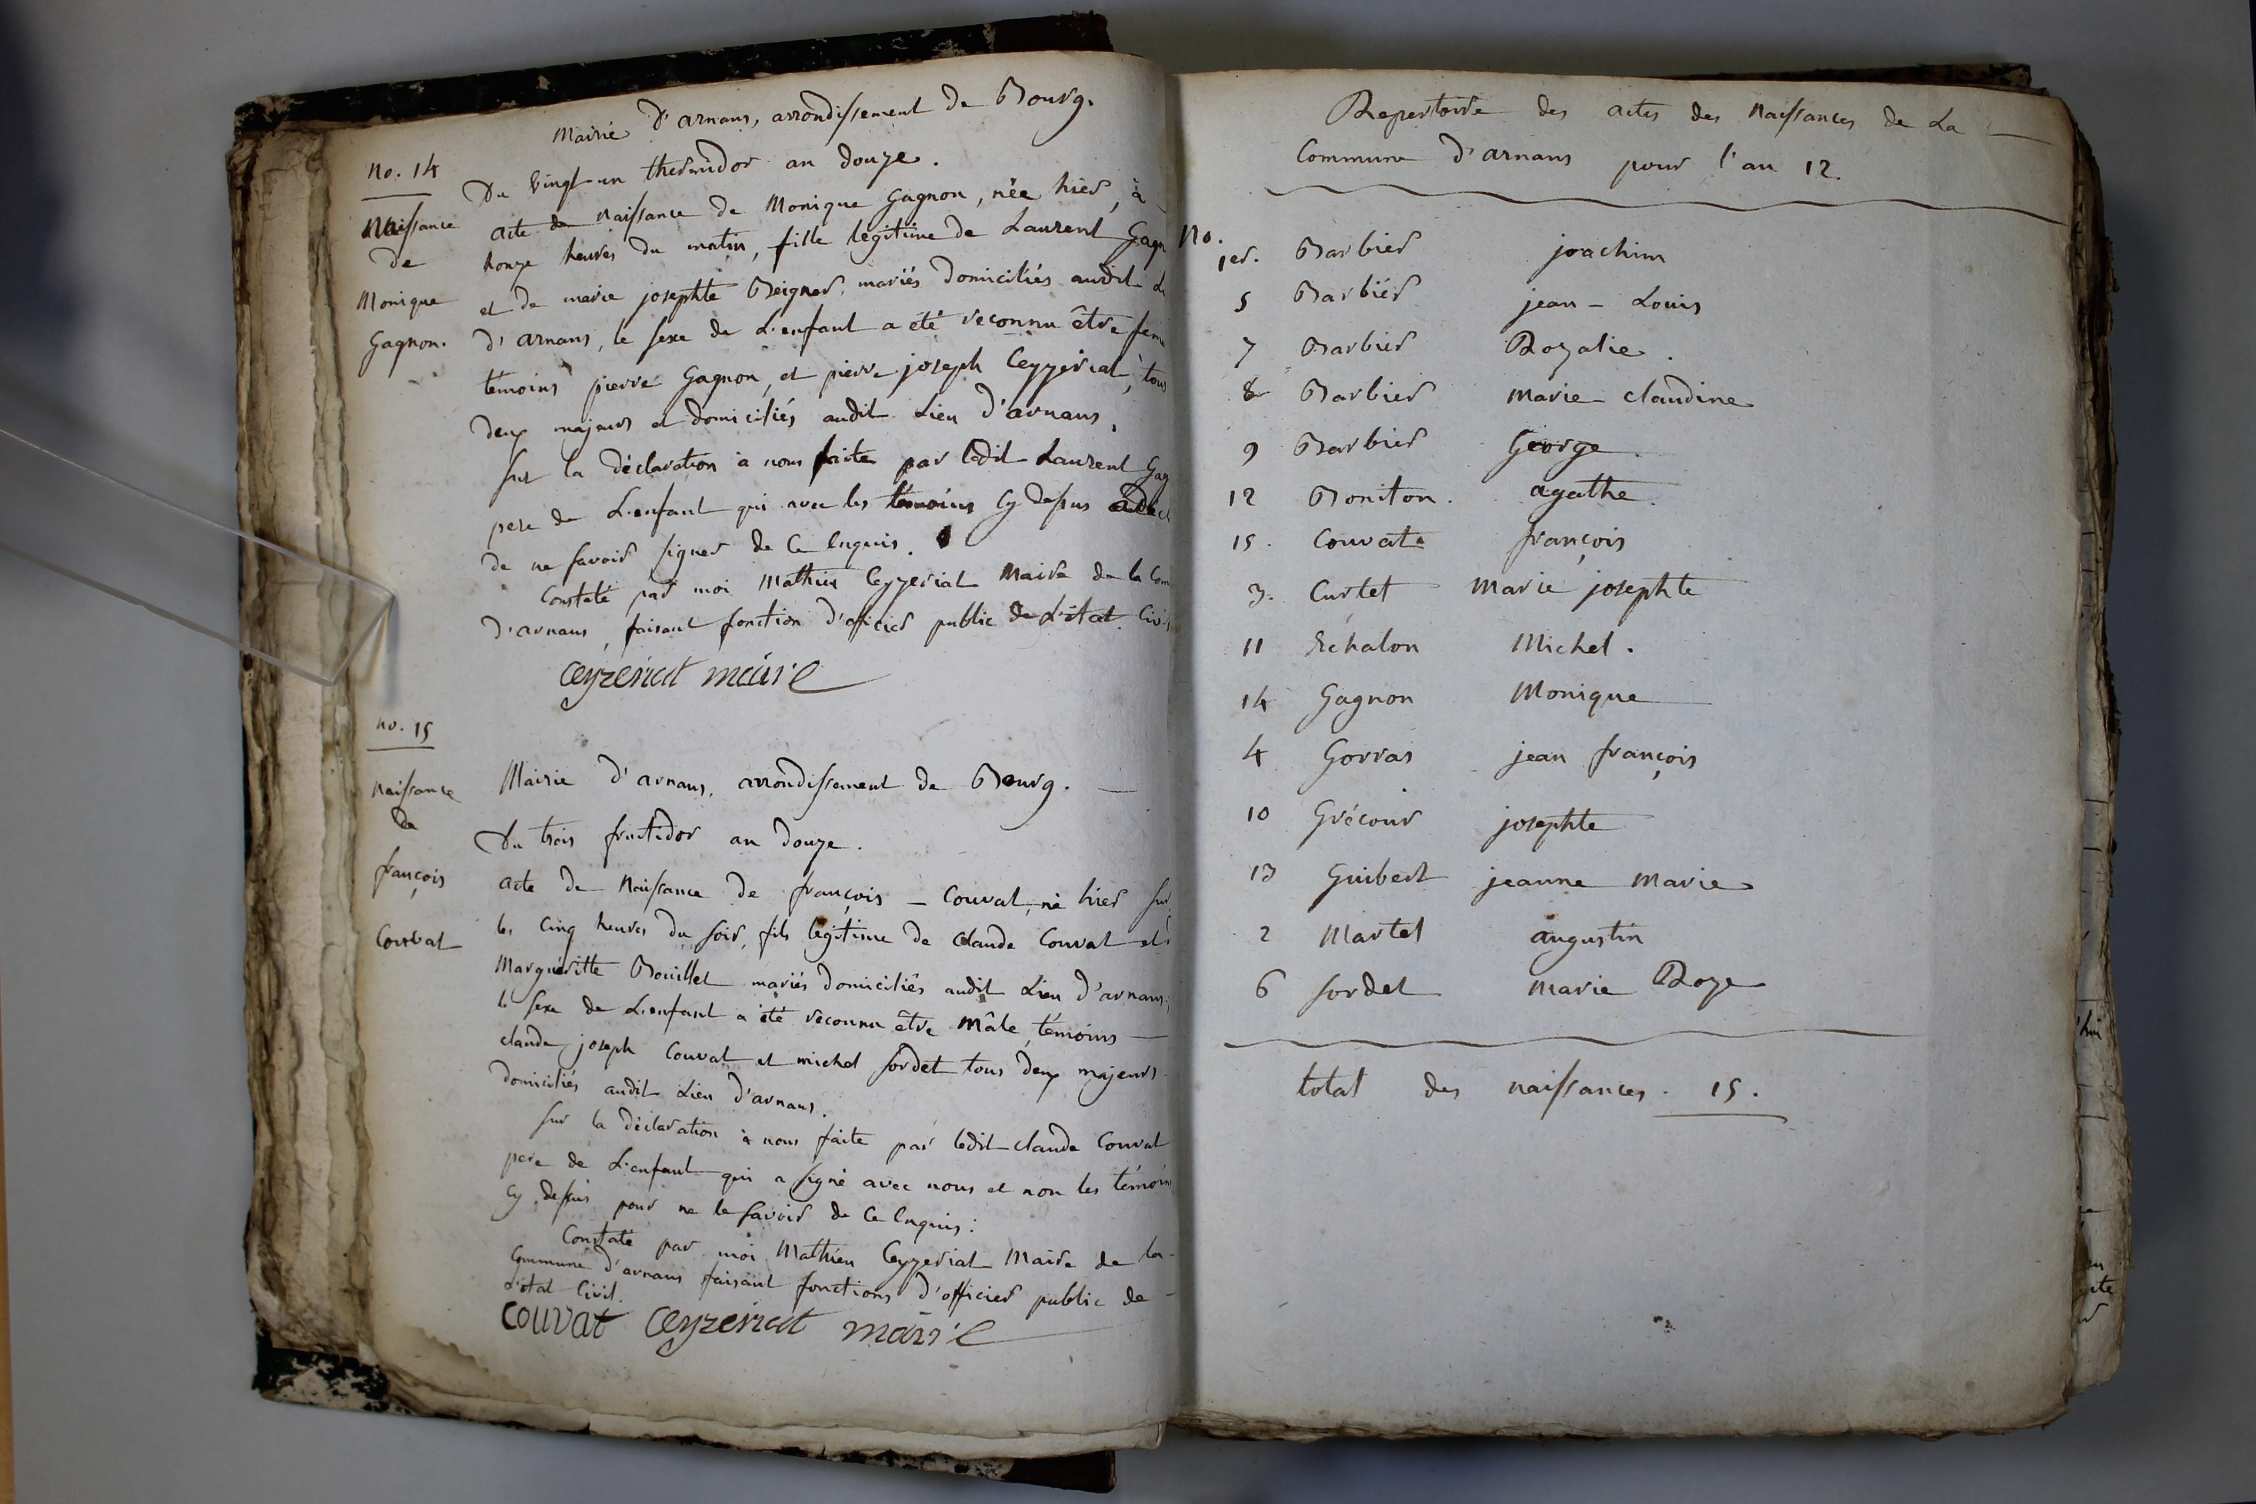 Mairie d'arnans, arrondissement de Bourg.
no. 14
Du vingt un thermidor an douze.
Naissance
de
Monique
Gagnon.
acte de naissance de Monique Gagnon, née hier, à
honze heures du matin, fille légitime de Laurent Gagn
et de marie josephte Beigner, mariés domiciliés audit
d'arnans, le sexe de L'enfant a été reconnu être femi
témoins pierre Gagnon, et pierre joseph Ceyzeriat, tous
deux majeurs et domiciliés audit Lieu d'arnans,
sur la déclaration à nous faite par ledit Laurent Gag
pere de L'enfant qui avec les témoins cy dessus
de ne savoir signer de ce Enquis.
Constaté par moi Mathieu Ceyzeriat Maire de la Com
d'arnans, faisant fonction d'officier public de L'état Civi
Ceyzeriat maire
no. 15
Naissance
de
françois
Couvat
Mairie d'arnans, arrondissement de Bourg.
Du trois fructidor an douze.
acte de Naissance de françois - Couvat, né hier sur
les cinq heures du soir, fils légitime de claude Couvat et
Margueritte Bouillet mariés domiciliés audit Lieu d'arnans,
le sexe de L'enfant a été reconnu être mâle, témoins
claude joseph Couvat et michel Sordet tous deux majeurs
domiciliés audit Lieu d'arnans.
sur la déclaration à nous faite par ledit claude Couvat
pere de L'enfant qui a signé avec nous et non les témoins
cy dessus pour ne le savoir de ce Enquis:
Constaté par moi Mathieu Ceyzeriat Maire de la
Commune d'arnans faisant fonctions d'officier public de
L'état Civil.
Couvat Ceyzeriat maire
Repertoire des actes des Naissances de La
Commune d'arnans pour l'an 12.
No.
1er. Barbier joachim
5 Barbier jean - Louis
7 Barbier Rozalie.
8 Barbier marie claudine
9 Barbier George.
12 Boniton. agathe.
15. Couvat françois
3. Curtet Marie josephte
11 Echalon Michel.
14 Gagnon Monique
4 Gorras jean françois
10 Grécour josephte
13 Guibert jeanne Marie
2 Martel augustin
6 Sordet Marie Roze
total des naissances. 15.